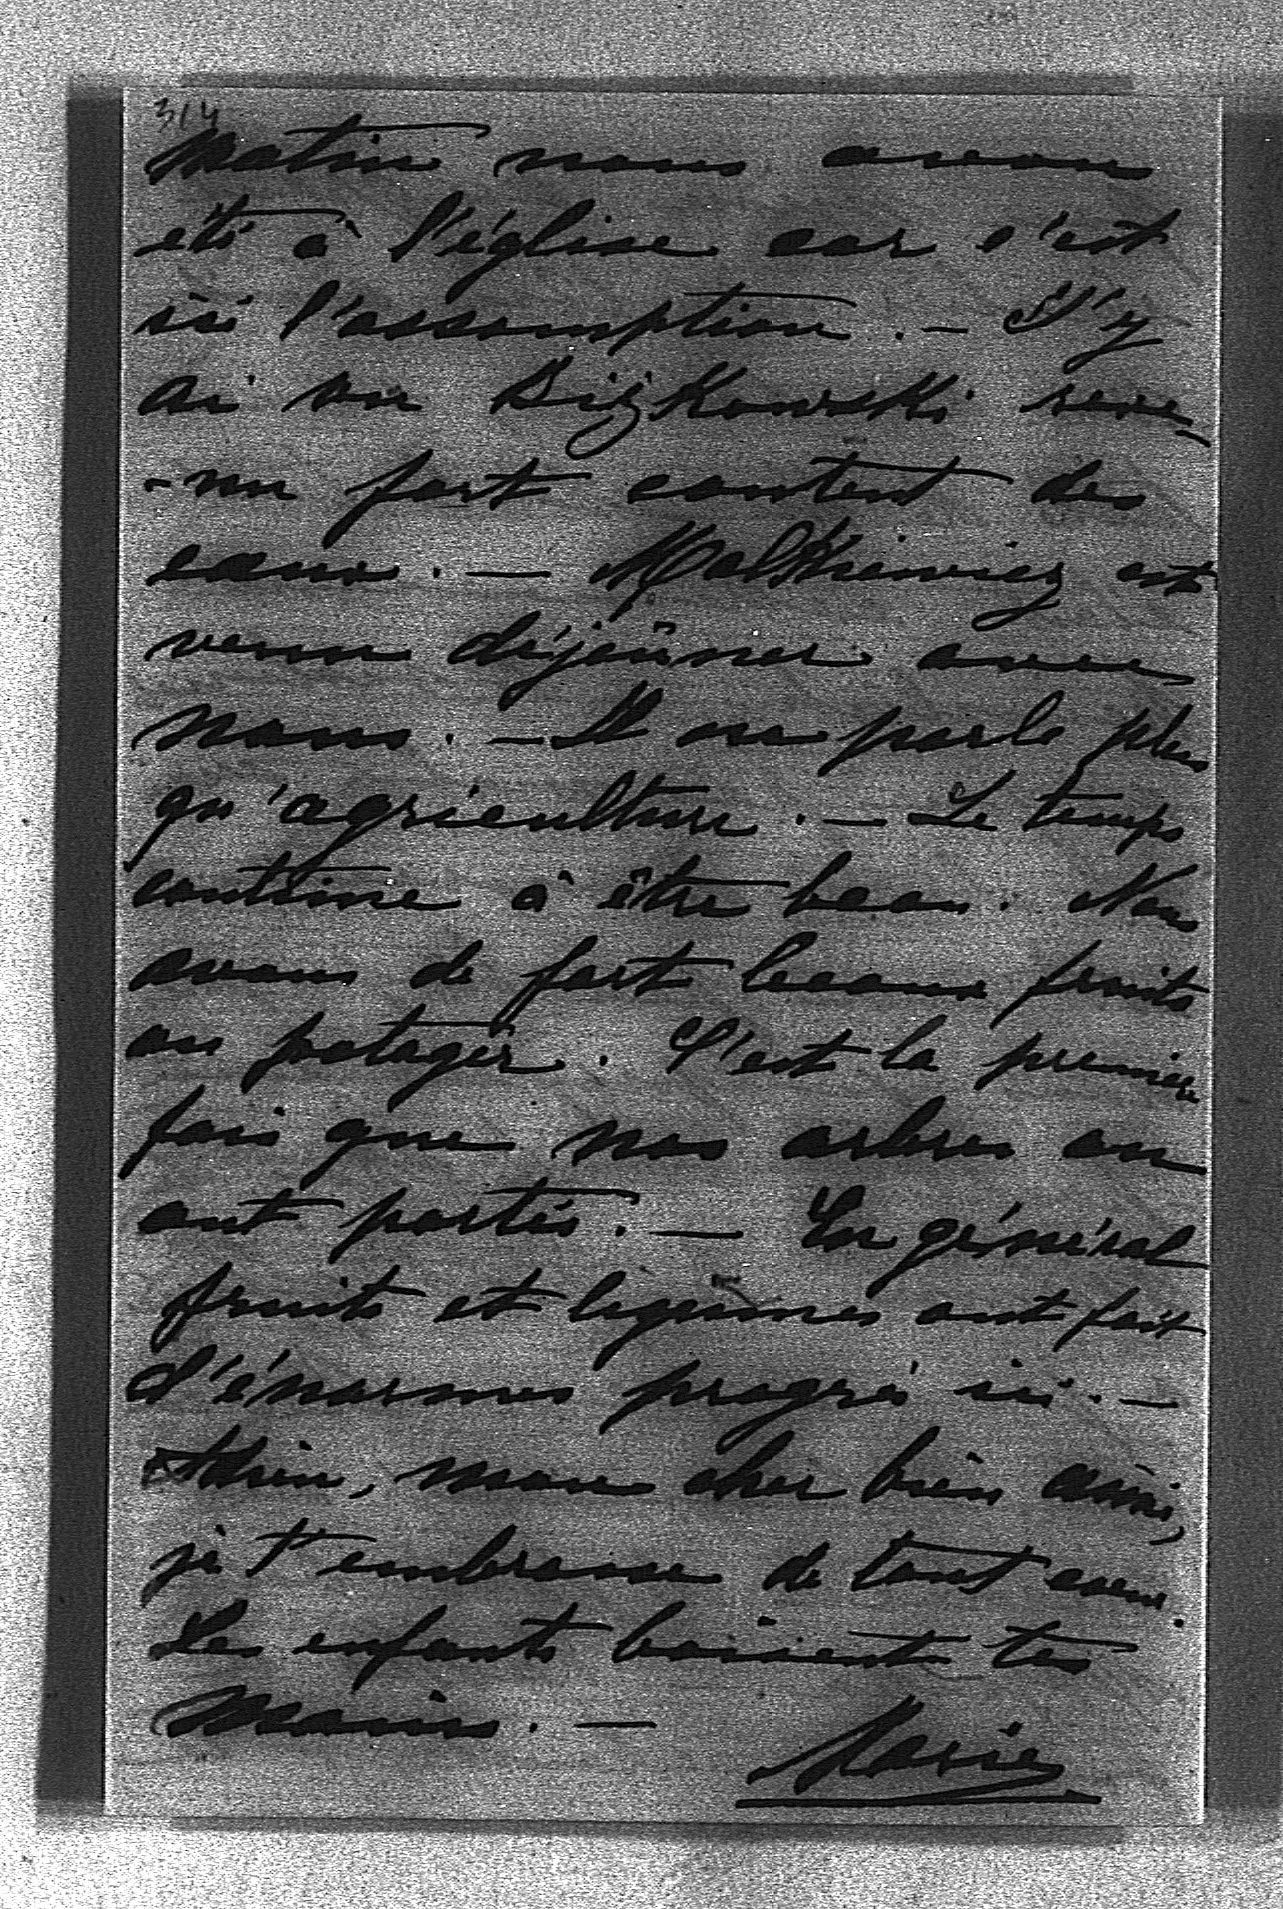 314
matin nous avons
été à l'église car c'est
ici l'assomption. — J'y
ai vu Bizkowski reve-
-nu fort content des
eaux. — Malkiewicz est
venu déjeûner avec
nous. — Il ne parle plus
qu'agriculture. — Le temps
continue à être beau. Nous
avons de fort beaux fruits
au potager. C'est la première
fois que nos arbres en
ont portés. — En général
fruits et légumes ont fait
d'énormes progrès ici. —
mon cher bien aimé,
je t'embrasse de tout coeur.
Les enfants baisent tes
mains. —
Marie